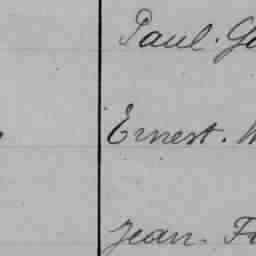 Paul. Ga
Ernest.
Jean. F